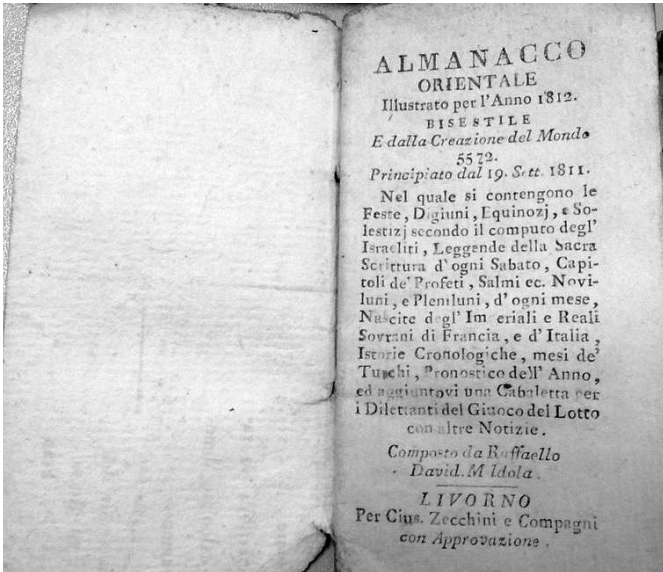 ALMANACCO
ORIENTALE
Illustrato per l'Anno 1812.
BISESTILE
E dalla Creazione del Mondo
5572.
Principiato dal 19. Sett. 1811.
Nel quale si contengono le
Feste, Digiuni, Equinozj, e So-
lestizj secondo il computo degl'
Israeliti, Leggende della Sacra
Scrittura d'ogni Sabato, Capi-
toli de' Profeti, Salmi ec. Novi-
luni, e Pleniluni, d'ogni mese,
Nascite degl' Im eriali e Reali
Sovrani di Francia, e d'Italia,
Istorie Cronologiche, mesi de'
Turchi, Pronostico dell' Anno,
ed aggiuntovi una Cabaletta per
i Dilettanti del Giuoco del Lotto
con altre Notizie.
Composto da Raffaello
David. M ldola.
LIVORNO
Per Gius. Zecchini e Compagni
con Approvazione.